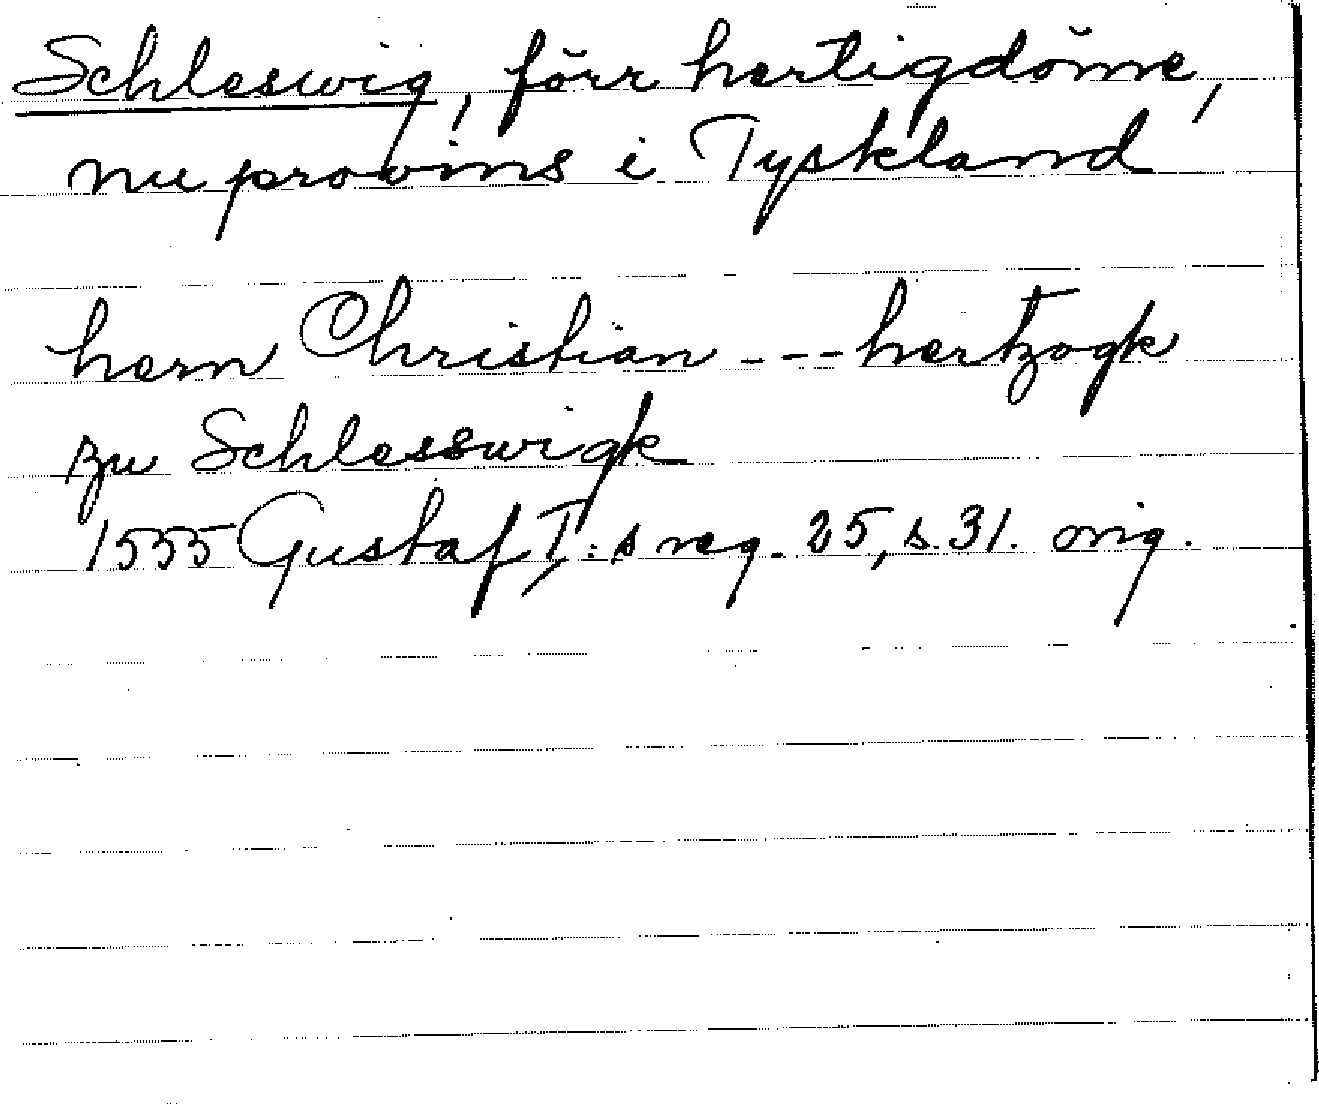 Schleswig, förr hertigdöme,
nu provins i Tyskland
hern Christian --- hertzogk
zu Schlesswigk
1555 Gustaf I:s reg. 25, s. 31. orig.